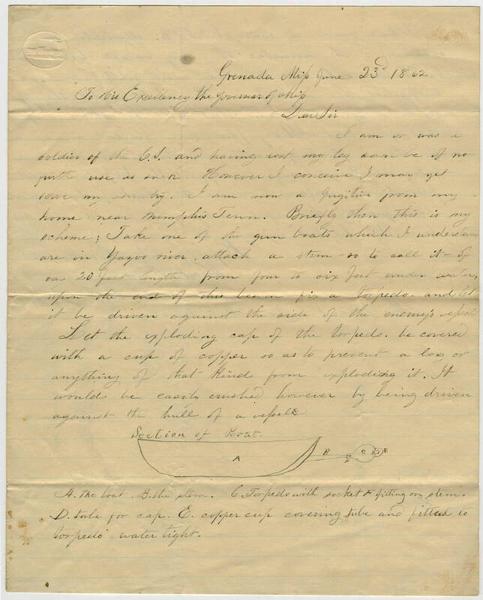 Grenada Miss June 23d 1862
To His Excelency the governor of Miss
Dear Sir
I am or was a
soldier of the C.S. and having lost my leg can be of no
further use as such However I conceive I may yet
serve my country. I am now a fugitive from my
home near Memphis Tenn. Briefly then this is my
scheme; Take one of the gun boats which I understand
are in Yazoo river, attach a stem so to call it of
20 feet length from four to six feet under water,
upon the end of this beam fix a torpedo and let
it be driven against the side of the enemy's vessel
Let the exploding cap of the torpedo be covered
with a cup of copper so as to prevent a log or
anything of that kind from exploding it. It
would be easily crushed however by being driven
against the hull of a vessel
Section of Boat.
A B D C E
A. the boat B. the stem. C. Torpedo with socket fitting on stem.
D. tube for cap. E. copper cup covering tube and fitted to
torpedo water tight.